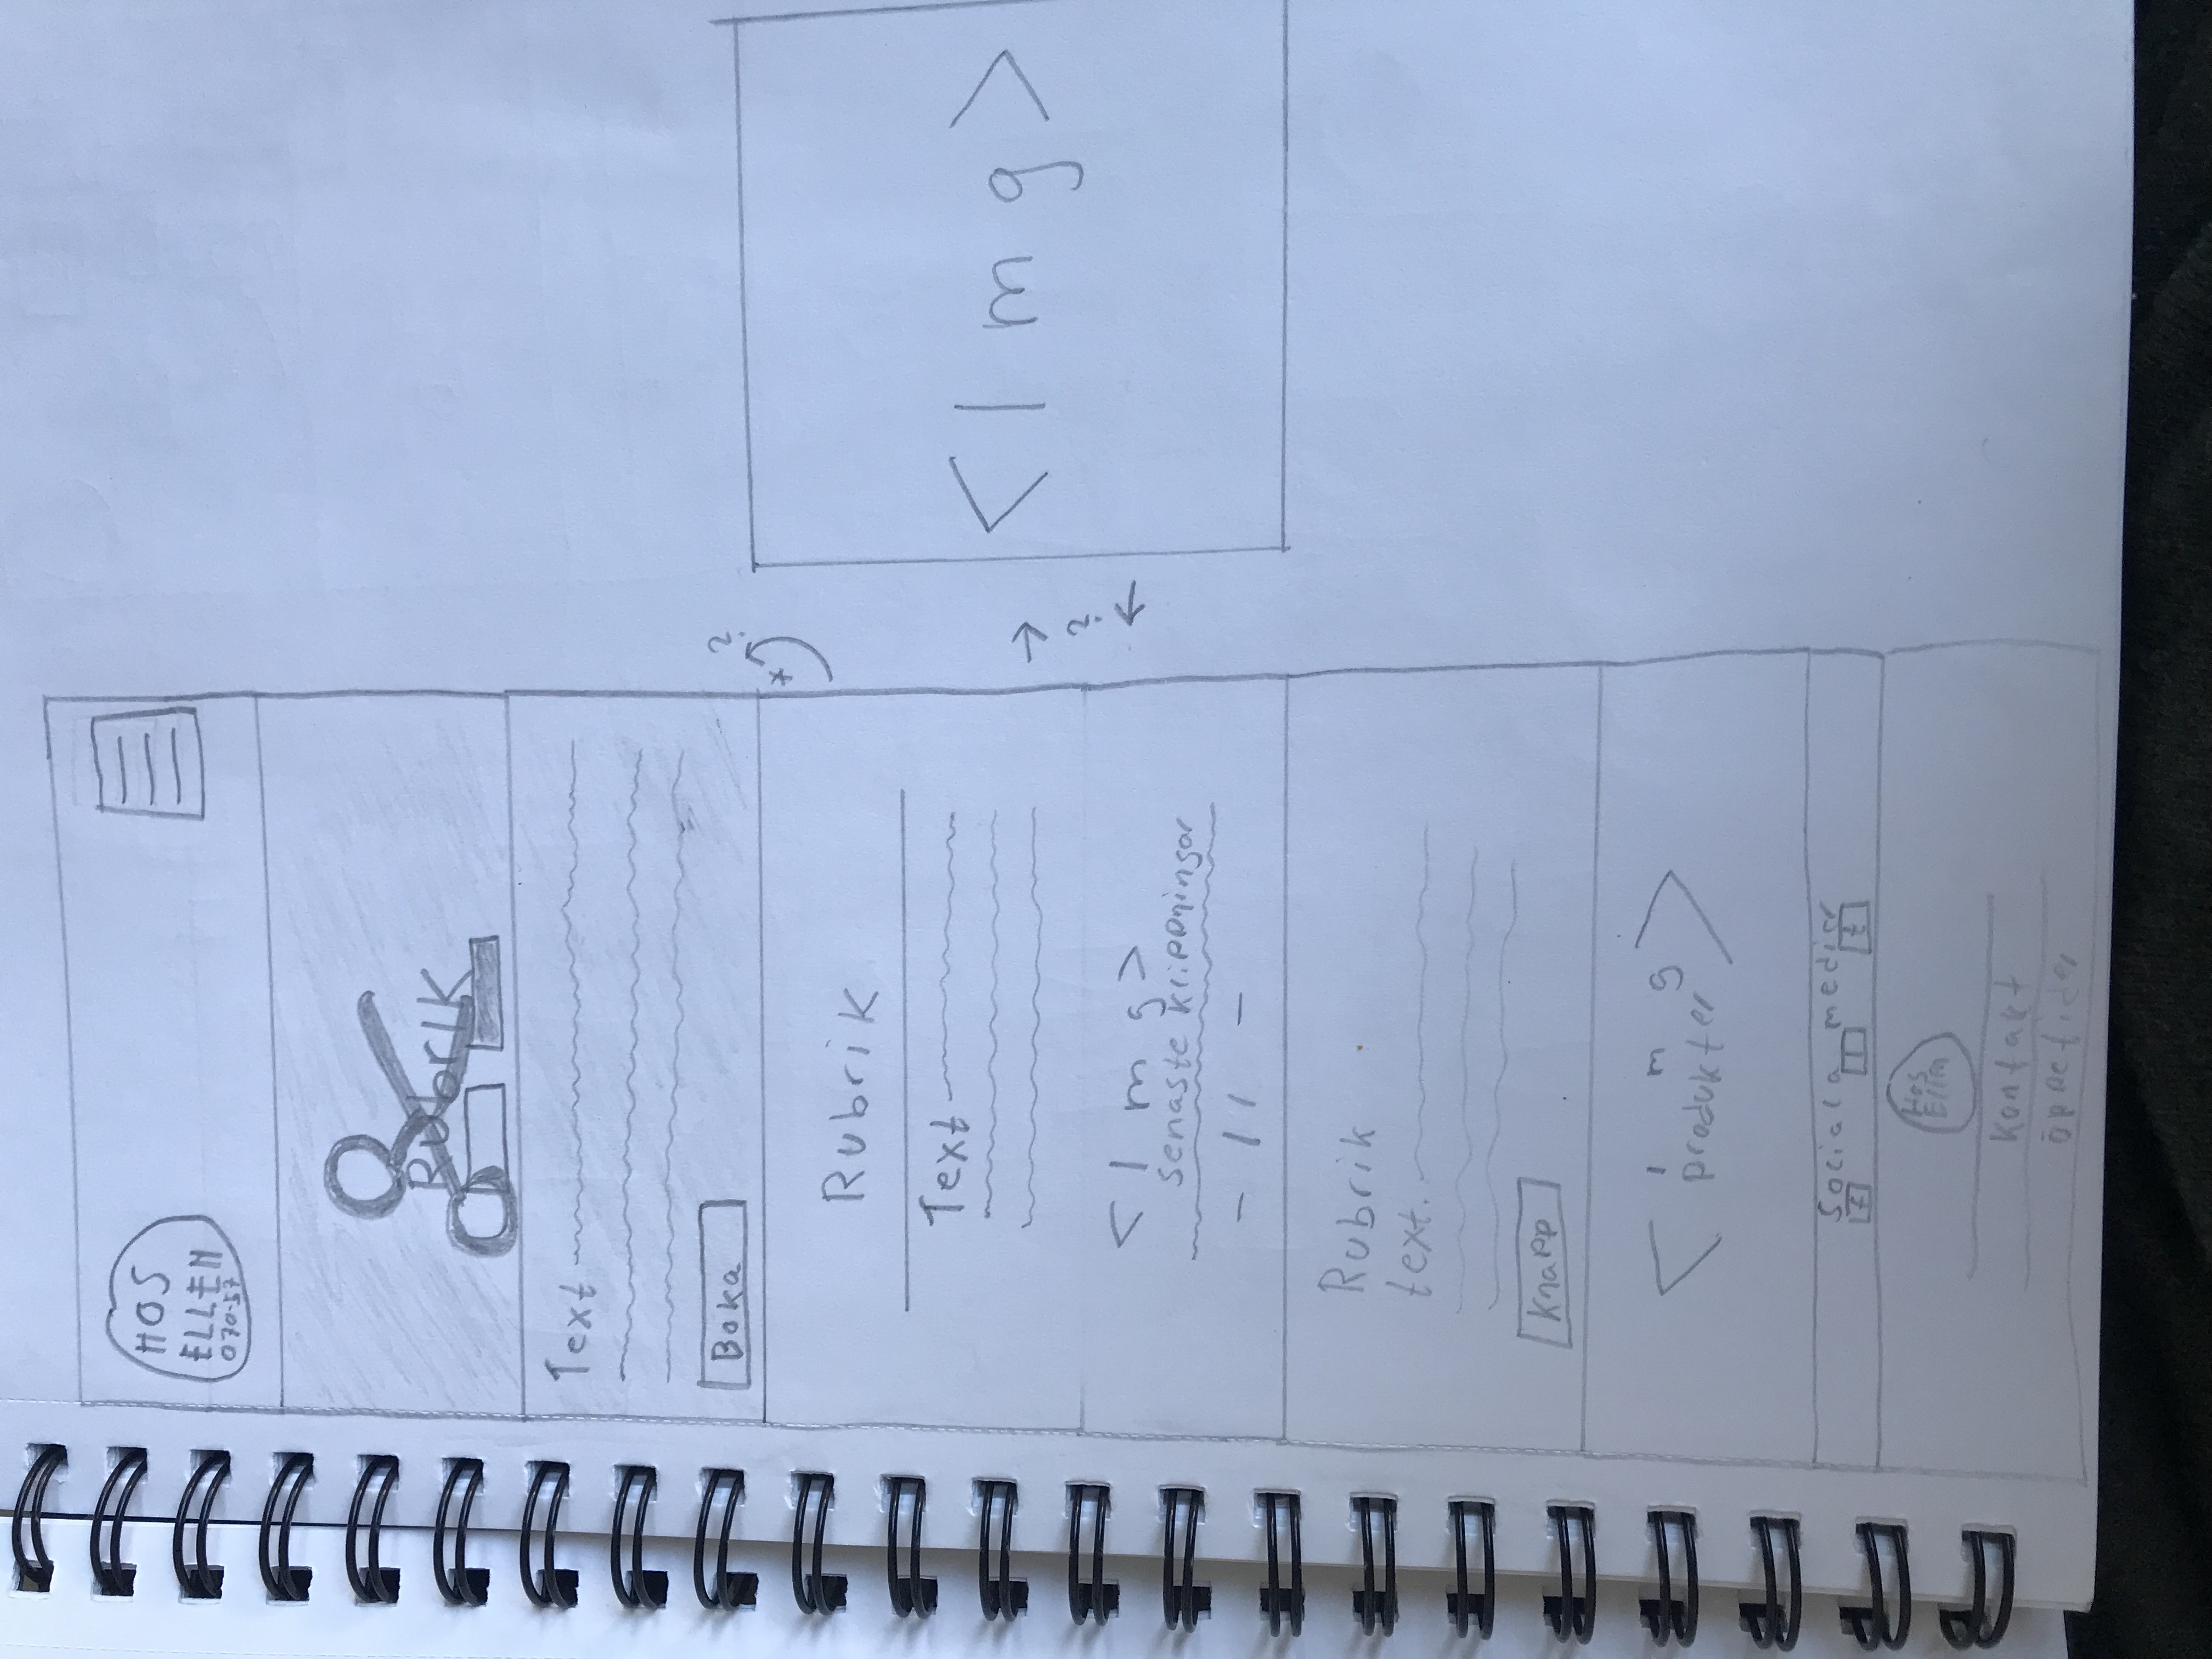 HOS
ELLEN
070-57
Rubrik
Text
Boka
?
x
Rubrik
Text
< I m g >
senaste klippningar
- 11 -
→
?
←
< I m g >
Rubrik
text.
Knapp
< I m g >
produkter
Sociala medier
f I t
Hos
Ellen
Kontakt
öppetider